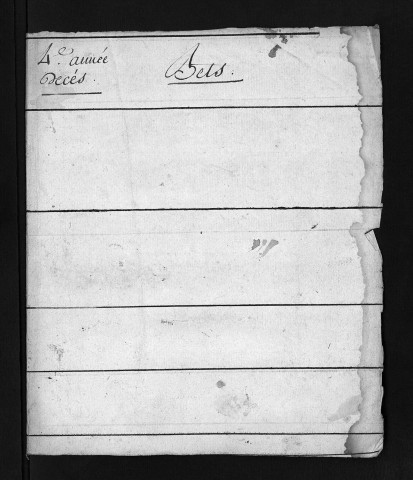 4.e année
Decés.
Bets.